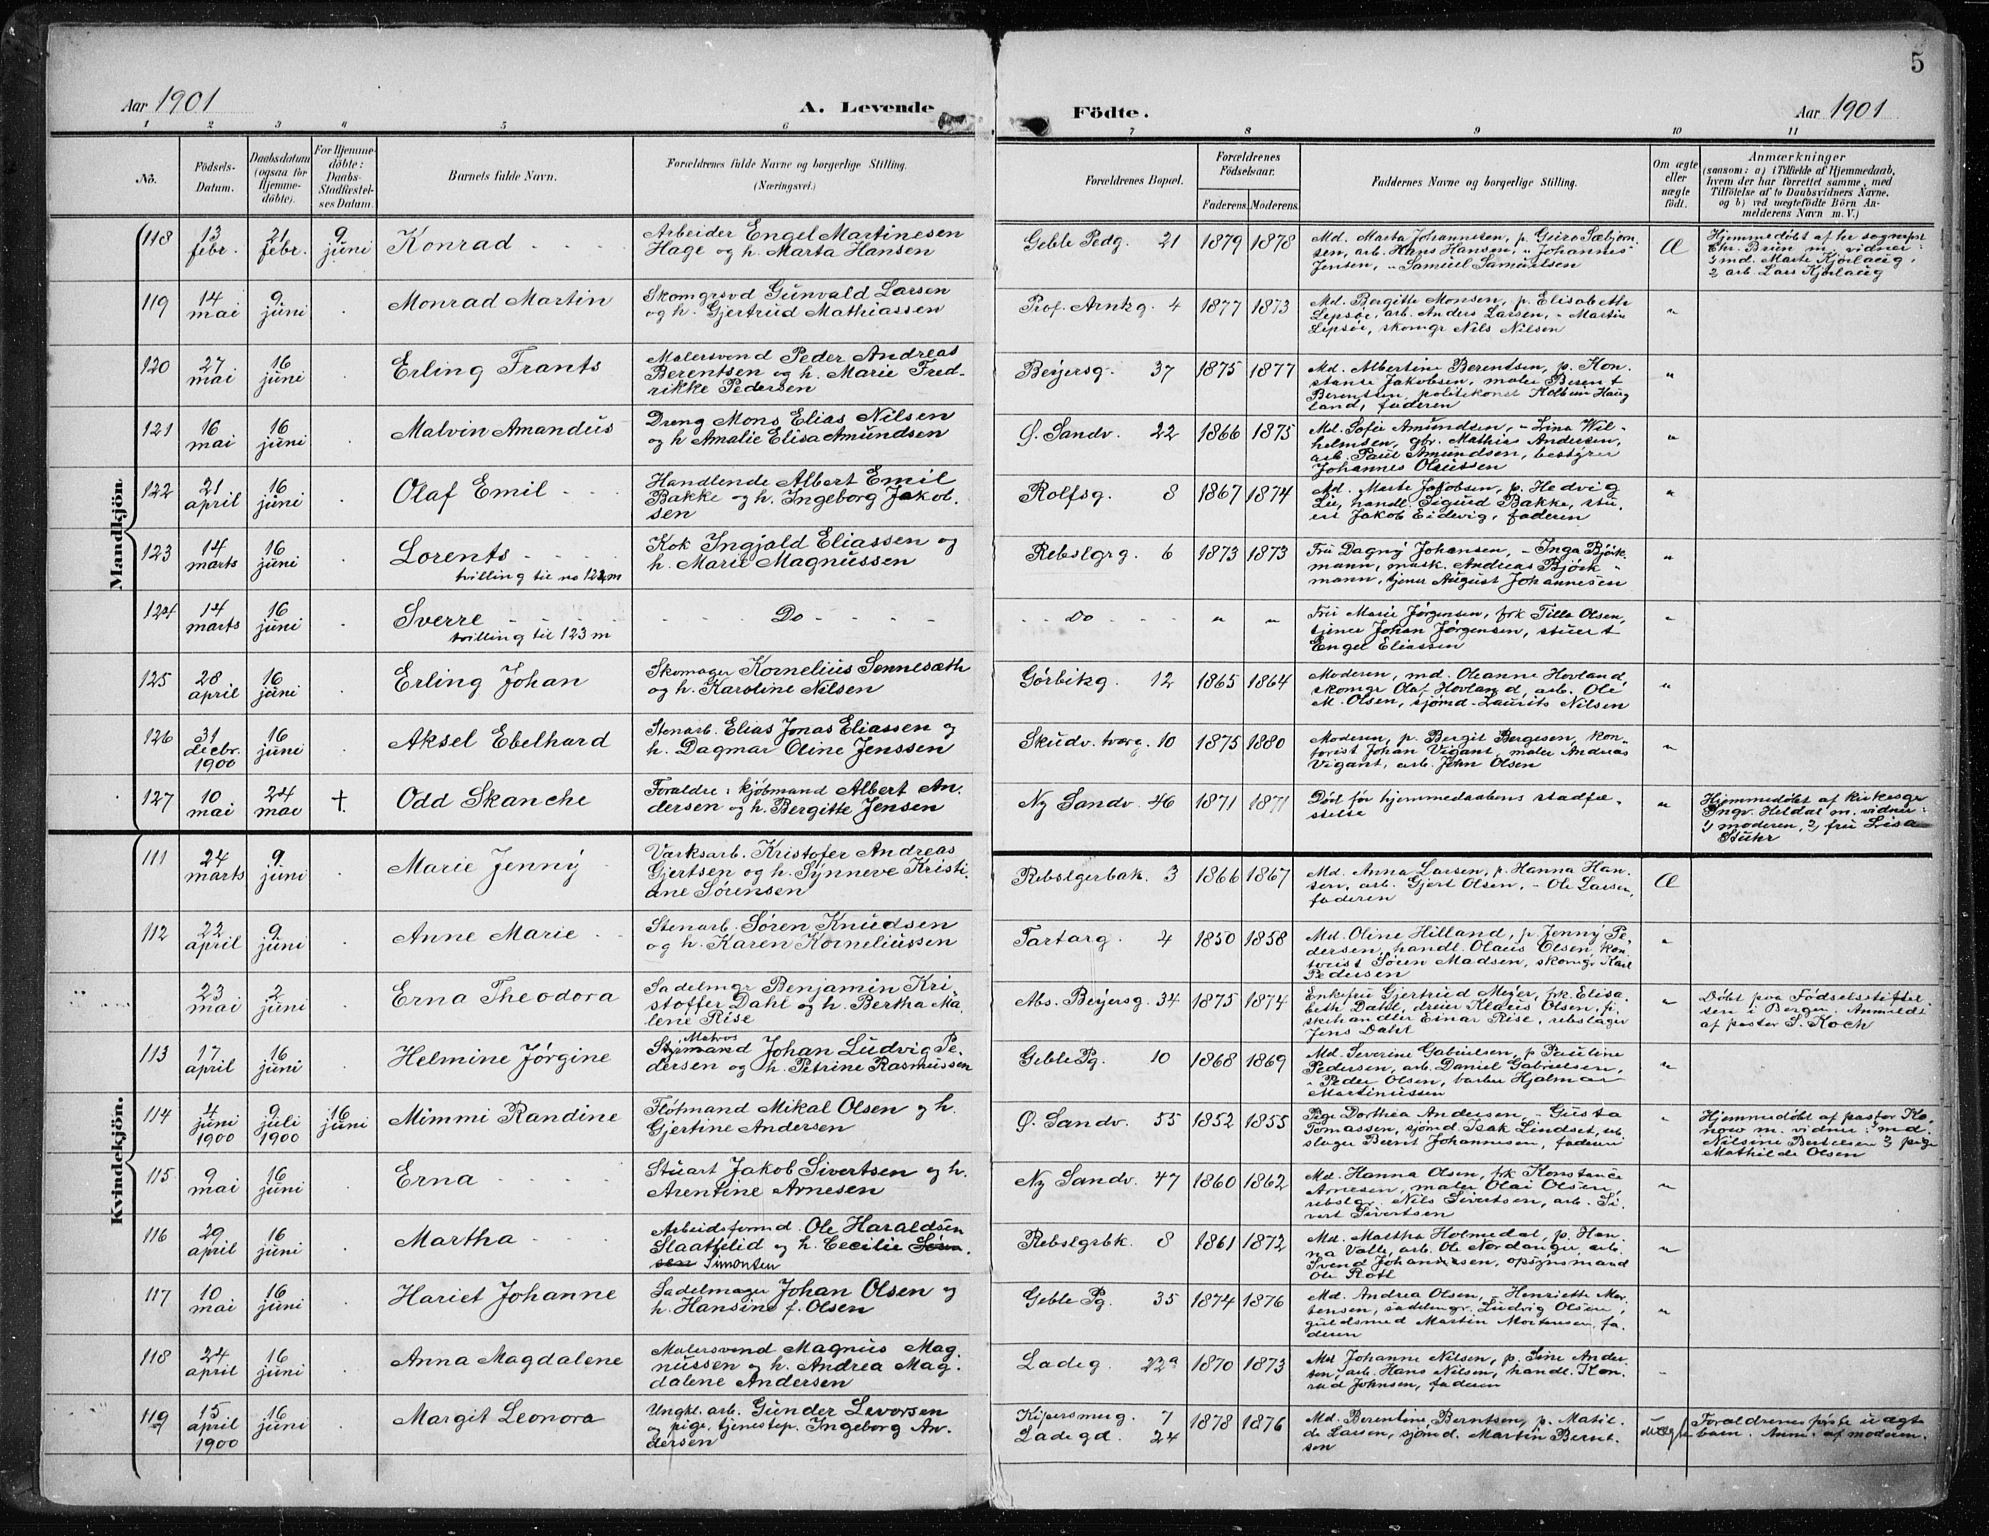 5
Aar 1901
A. Levende
Födte.
Aar 1901
1 2 3 4 5 6 7 8 9 10 11
No.
Födsels-
Datum.
Daabsdatum
(ogsaa for
Hjemme-
döbte).
For Hjemme-
döbte:
Daabs-
Stadfæstel-
ses Datum.
Barnets fulde Navn.
Forældrenes fulde Navne og borgerlige Stilling.
(Næringsvei.)
Forældrenes Bopæl.
Forældrenes
Födselsaar.
Faderens. Moderens.
Faddernes Navne og borgerlige Stilling.
Om ægte
eller
uægte
födt.
Anmærkninger
(saasom: a) i Tilfælde af Hjemmedaab,
hvem der har forrettet samme, med
Tilföielse af to Daabsvidners Navne.
og b) ved uægtefödte Börn An-
melderens Navn m. V.)
Mandkjön.
118 13 febr. 21 febr. 9 juni Konrad
Arbeider Engel Martinesen
Hage og h. Marta Hansen
Geble Pedg. 21 1879 1878
Md. Marta Johannesen, p. Guro Sæbjørn-
sen, arb. Hans Hansen, " Johannes
Jensen, " Samuel Samuelsen
Æ
Hjemmedøbt af hr sognepr
Chr. Bruun m. vidner:
1) md. Marte Kjørlaug,
2) arb. Lars Kjørlaug
119 14 mai 9 juni Monrad Martin
Skomgrsvd Gunvald Larsen
og h. Gjertrud Mathiassen
Prof. Arnkg. 4 1877 1873
Md. Bergitte Monsen, p. Elisabeth
Lepsøe, arb. Anders Larsen, " Martin
Lepsøe, skomgr Nils Nilsen
"
120 27 mai 16 juni Erling Frants
Malersvend Peder Andreas
Berentsen og h. Marie Fred-
rikke Pedersen
Beijersg. 37 1875 1877
Md. Albertine Berentsen, p. Kon-
stanse Jakobsen, maler Berent
Berentsen, politikonst Kolbein Haug
land, faderen
"
121 16 mai 16 juni Malvin Amandus
Dreng Mons Elias Nilsen
og h Amalie Elisa Amundsen
Ø. Sandv. 22 1866 1875
Md. Sofie Amundsen, - Lina Wil-
helmsen, gbr. Mathias Andersen,
arb. Paul Amundsen, bestyrer
Johannes Olsen
"
122 21 april 16 juni Olaf Emil
Handlende Albert Emil
Bakke og h. Ingeborg Jakob-
sen
Rolfsg. 8 1867 1874
Md. Marte Jakobsen, p. Hedvig
Lie, handl. Sigurd Bakke, stu-
ert Jakob Eidevig, faderen
"
123 14 marts 16 juni Lorents
tvilling til no 124 m
Kok Ingjald Eliassen og
h. Marie Magnussen
Rebslgrg. 6 1873 1873
Fru Dagny Johansen, - Inga Bjørk-
mann, mask. Andreas Bjørk-
mann, tjener August Johannesen
"
124 14 marts 16 juni Sverre
tvilling til 123 m
Do
Do " "
Fru Marie Jørgensen, frk Tilla Olsen,
tjener Johan Jørgensen, stuert
Engel Eliassen
"
125 28 april 16 juni Erling Johan
Skomager Kornelius Sennesæth
og h. Karoline Nilsen
Gørbitkg. 12 1865 1864
Moderen, md. Oleanne Hovland,
skomgr Olaf Hovland, arb. Ole
M. Olsen, sjømd. Laurits Nilsen
"
126 31 decbr. 1900 16 juni Aksel Ebelhard
Stenarb. Elias Jonas Eliassen og
h. Dagmar Oline Jenssen
Skudv. tværg. 10 1875 1880
Moderen, p. Bergit Bergesen, kon-
torist Johan Vigant, maler Andreas
Vigant, arb. John Olsen
"
127 10 mai 24 mai † Odd Skanche
Foraldre: kjøbmand Albert An-
dersen og h. Bergitte Jensen
Ny Sandv. 46 1871 1871
Død før hjemmedaabens stadfæ-
stelse
"
Hjemmedøbt af kirkesgr
Ingv. Heldal m. vidner:
1) moderen, 2) fru Lisa
Stuhr
Kvindekjön.
111 24 marts 9 juni Marie Jenny
Værksarb. Kristofer Andreas
Gjertsen og h. Synneve Kristi-
ane Sørensen
Rebslgerbak. 3 1866 1867
Md. Anna Larsen, p. Hanna Han-
sen, arb. Gjert Olsen, - Ole Larsen,
faderen
Æ
112 22 april 9 juni Anne Marie
Stenarb. Søren Knudsen
og h. Karen Korneliussen
Tartarg. 4 1850 1858
Md. Oline Hilland, p. Jenny Pe-
dersen, handl. Olaus Olsen, kon-
torist Søren Madsen, skomgr Karl
Pedersen
"
23 mai 2 juni Erna Theodora
Sadelmgr Benjamin Kri-
stoffer Dahl og h. Bertha Ma-
lene Rise
Abs. Beijersg. 34 1875 1874
Enkefru Gjertrud Meyer, frk. Elisa-
beth Dahl, dreier Klaus Olsen, fi-
skehandler Einar Rise, rebslager
Jens Dahl
"
Døbt paa Fødselsstiftel-
sen i Bergen. Anmeldt
af pastor S. Koch
113 17 april 16 juni Helmine Jørgine
Matros
Styrmand Johan Ludvig Pe-
dersen og h. Petrine Rasmussen
Geble Pg. 10 1868 1869
Md. Severine Gabrielsen, p Pauline
Pedersen, arb. Daniel Gabrielsen,
" Peder Olsen, barber Hjalmar
Martinussen
"
114 4 juni 1900 9 juli 1900 16 juni Mimmi Randine
Fløtmand Mikal Olsen og h.
Gjertine Andersen
Ø. Sandv. 55 1852 1855
Pige Dorthea Andersen, - Gusta
Tomassen, sjømd Isak Lindset, reb
slager Bernt Johannesen, faderen
"
Hjemmedøbt af pastor Klo-
now m. vidner: md.
Nilsine Bertelsen 2) pige
Mathilde Olsen
115 9 mai 16 juni Erna
Stuart Jakob Sivertsen og h.
Arentine Arnesen
Ny Sandv. 47 1860 1862
Md. Hanna Olsen, frk Konstance
Arnesen, maler Olai Olsen,
rebslgr. Nils Sivertsen, arb. Si-
vert Sivertsen
"
116 29 april 16 juni Martha
Arbeidsformd. Ole Haraldsen
Slaattelid og h. Cecilie Søren-
sen Simonsen
Rebslgrbk. 8 1861 1872
Md. Martha Holmedal, p. Han-
na Valle, arb. Ole Nordanger, arb.
Svend Johannesen, opsynsmand
Ole Rott
"
117 10 mai 16 juni Hariet Johanne
Sadelmager Johan Olsen og
h. Hansine f. Olsen
Geble Pg. 35 1874 1876
Md. Andrea Olsen, - Henriette Mor-
tensen, sadelmgr. Ludvig Olsen,
guldsmed Martin Mortensen, fa-
deren
"
118 24 april 16 juni Anna Magdalene
Malersvend Magnus Mag-
nussen og h. Andrea Mag-
dalene Andersen
Ladeg. 22a 1870 1873
Md Johanne Nilsen, p. Sine Ander-
sen, arb. Hans Nilsen, handl. Kon-
rad Johnsen, faderen
"
119 15 april 1900 16 juni Margit Leonora
Ungkl. arb. Gunder Levorsen
og pige, tjenestep. Ingeborg An-
dersen
Kipersmug. 7
Ladegd. 24 1878 1876
Md. Berentine Berntsen, p. Matil-
de Larsen, sjømd. Martin Bernt-
sen
uægte
Foraldrenes første uægte
barn. Anm. af moderen.